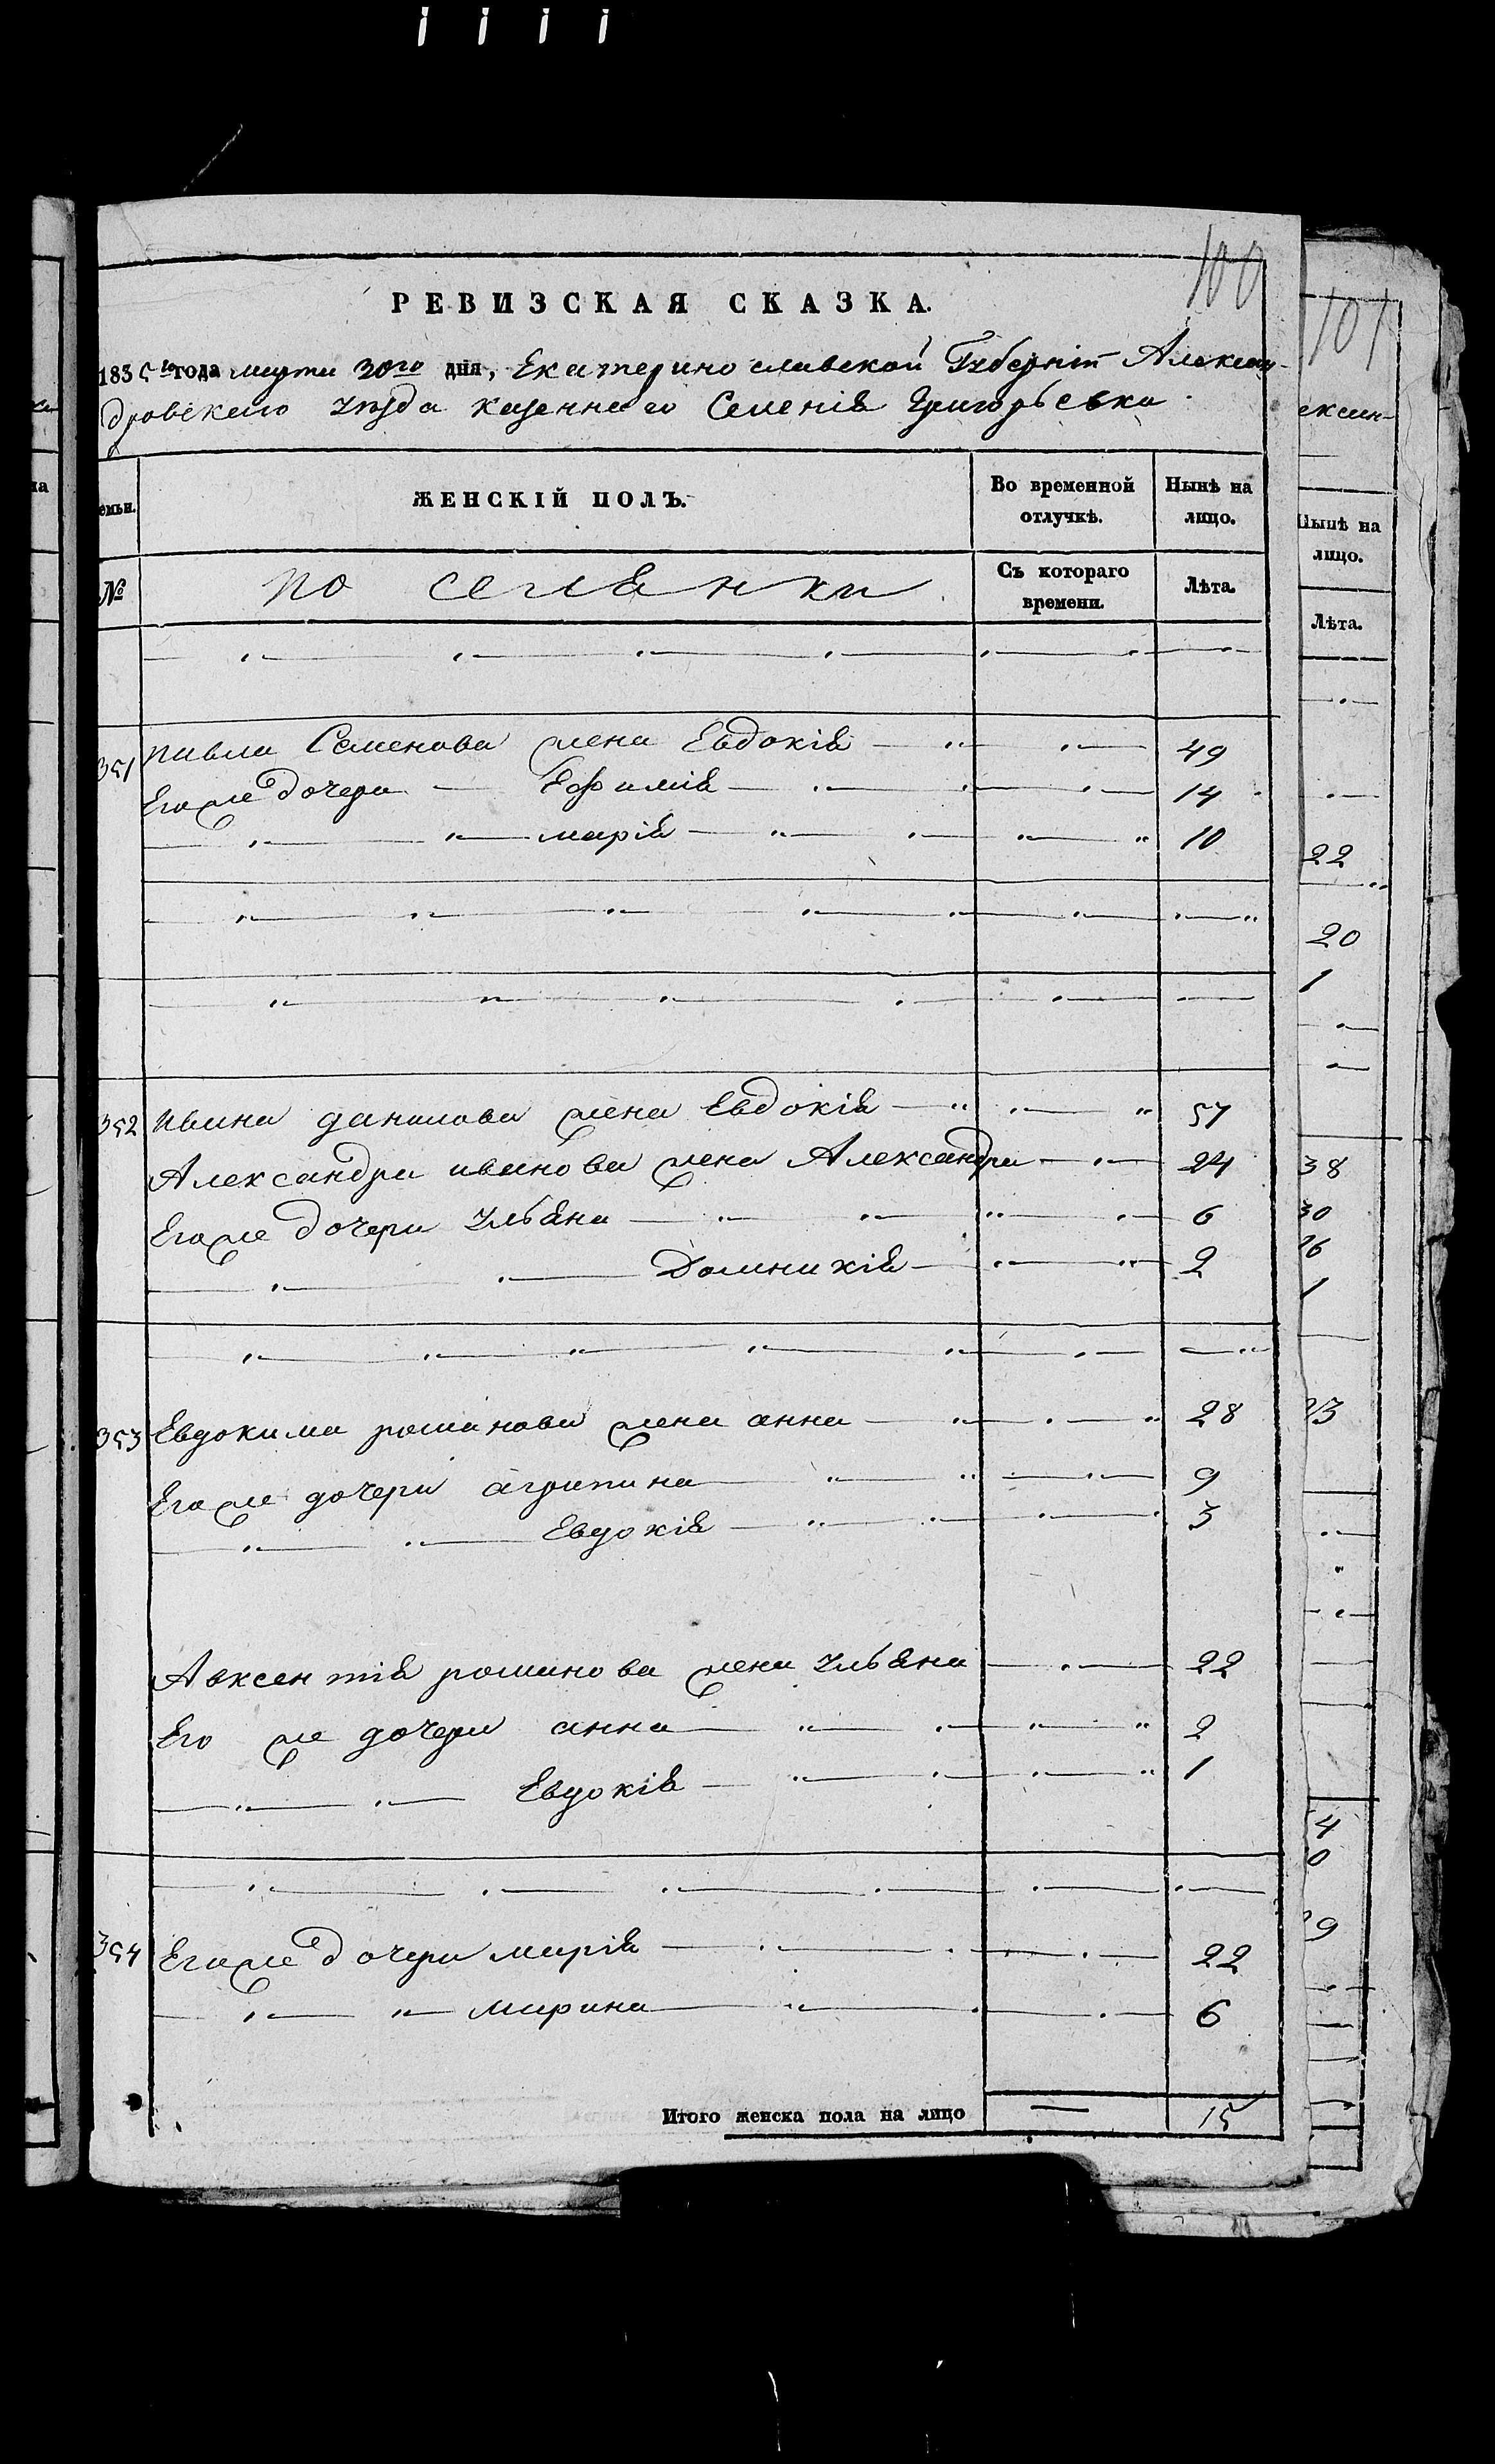 100
РЕВИЗСКАЯ СКАЗКА.
1835 го года марта 30го дня, Екатеринославской Губерніи Алексан-
дровскаго уезда казеннаго Селенія Григорьевки
емьи.
ЖЕНСКІЙ ПОЛЪ.
Во временной отлучкѣ.
Нынѣ на лицо.
№
поселянки
Съ котораго времени.
Лѣта.
351 павла Семенова жена Евдокія 49
Егоже дочери Ефимія 14
марія 10
352 ивана данилова жена Евдокія 57
Александра иванова жена Александра 24
Егоже дочери Ульяна 6
Домникія 2
353 Евдокима романова жена анна 28
Егоже дочери агрипина 9
Евдокія 3
Авксентія романова жена Ульяна 22
Его же дочери анна 2
Евдокія 1
354 Егоже дочери марія 22
марина 6
Итого женска пола на лицо 15
101
ексан-
Нынѣ на
лицо.
Лѣта.
22
20
1
38
30
1
4
0
9